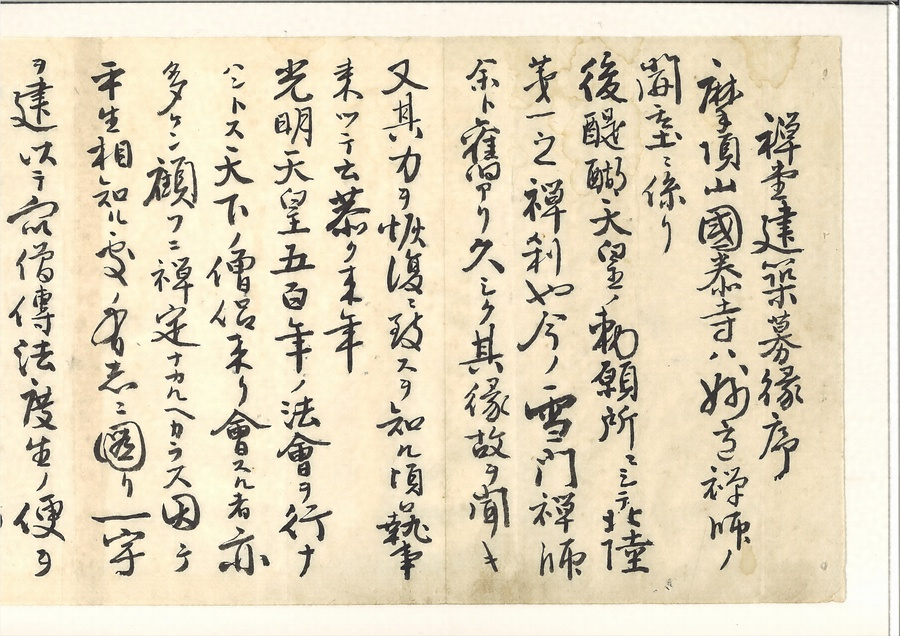 禅堂建築募縁序
摩頂山國泰寺ハ妙意禅師ノ
開基ニ係リ
後醍醐天皇ノ勅願所ニシテ北陸
第一之禅刹也今ノ雪門禅師
余ト舊アリ久シク其縁故ヲ聞キ
又其力ヲ恢復ニ致スヲ知ル頃日執事
来ツテ云恭ク来年
光明天皇五百年ノ法會ヲ行ナ
ハントス天下ノ僧侶来リ會スル者亦
多ケン顧フニ禅定ナカルヘカラス因テ
平生相知ル處ノ有志ニ圖リ一宇
ヲ建以テ衆僧傳法度生ノ便ヲ